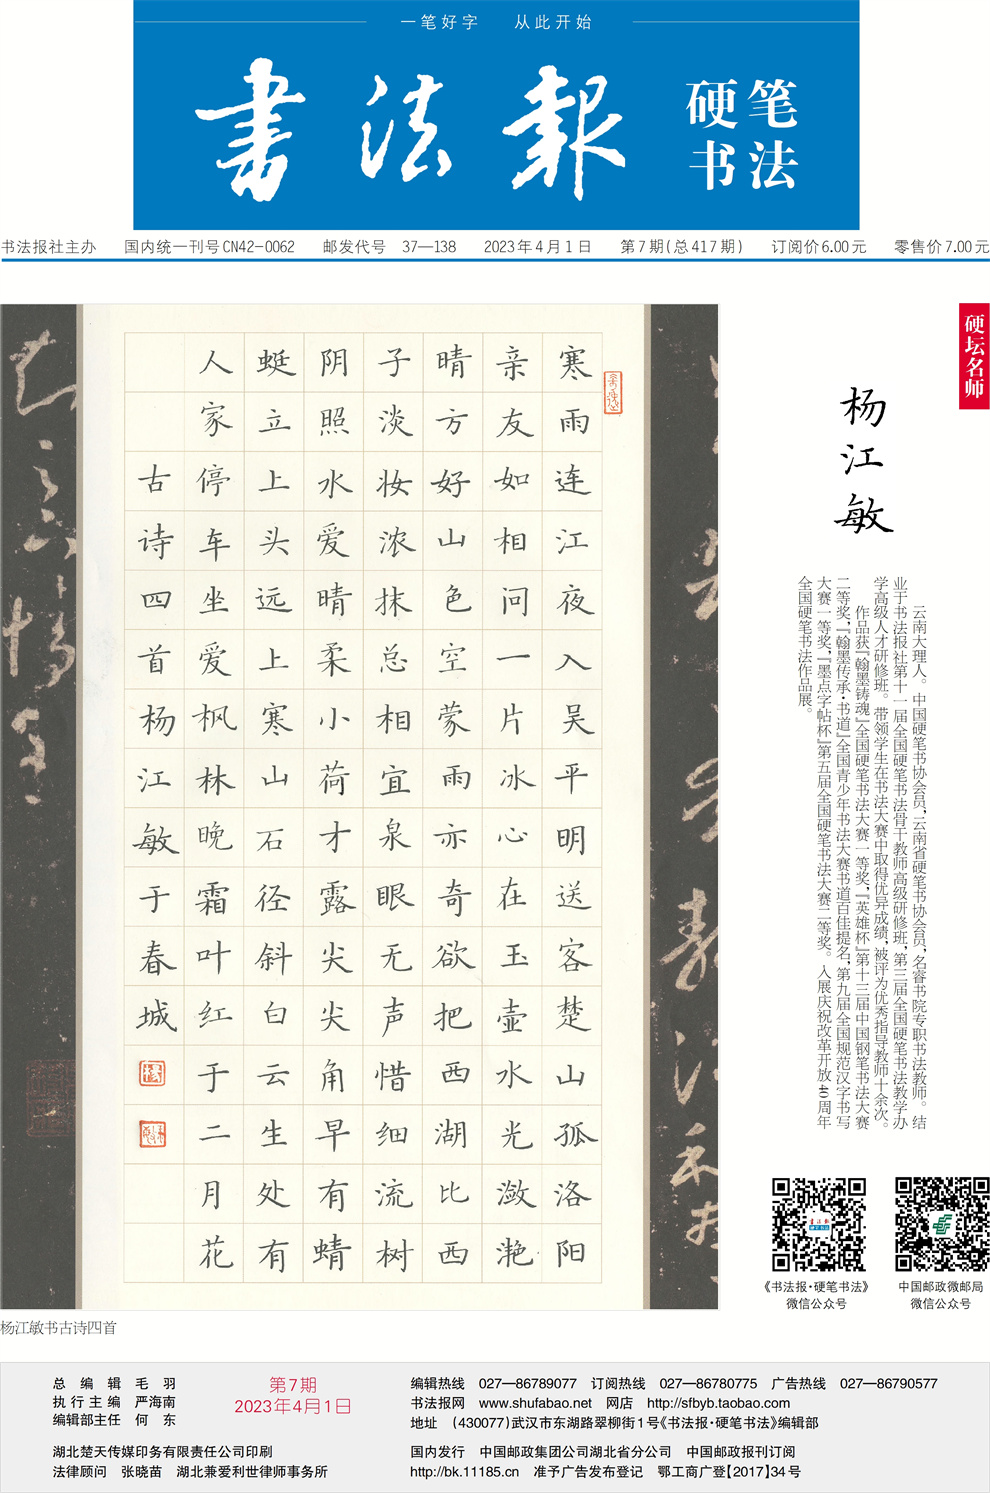 一笔好字 从此开始
書法報
硬笔
书法
书法报社主办 国内统一刊号CN42-0062 邮发代号 37—138 2023年4月1日 第7期(总417期) 订阅价6.00元 零售价7.00元
硬坛名师
杨江敏
云南大理人。中国硬笔书协会员，云南省硬笔书协会员，名睿书院专职书法教师。结
业于书法报社第十一届全国硬笔书法骨干教师高级研修班，第三届全国硬笔书法教学办
学高级人才研修班。带领学生在书法大赛中取得优异成绩，被评为优秀指导教师十余次。
作品获『翰墨铸魂』全国硬笔书法大赛一等奖，『英雄杯』第十三届中国钢笔书法大赛
二等奖，『翰墨传承·书道』全国青少年书法大赛书道百佳提名，第九届全国规范汉字书写
大赛一等奖，『墨点字帖杯』第五届全国硬笔书法大赛二等奖。入展庆祝改革开放40周年
全国硬笔书法作品展。
寒雨连江夜入吴平明送客楚山孤洛阳
亲友如相问一片冰心在玉壶水光潋滟
晴方好山色空蒙雨亦奇欲把西湖比西
子淡妆浓抹总相宜泉眼无声惜细流树
阴照水爱晴柔小荷才露尖尖角早有蜻
蜓立上头远上寒山石径斜白云生处有
人家停车坐爱枫林晚霜叶红于二月花
古诗四首杨江敏于春城
《书法报·硬笔书法》
微信公众号
中国邮政微邮局
微信公众号
杨江敏书古诗四首
总编辑 毛羽
执行主编 严海南
编辑部主任 何东
第7期
2023年4月1日
湖北楚天传媒印务有限责任公司印刷
法律顾问 张晓苗 湖北兼爱利世律师事务所
编辑热线 027—86789077 订阅热线 027—86780775 广告热线 027—86790577
书法报网 www.shufabao.net 网店 http://sfbyb.taobao.com
地址 (430077)武汉市东湖路翠柳街1号《书法报·硬笔书法》编辑部
国内发行 中国邮政集团公司湖北省分公司 中国邮政报刊订阅
http://bk.11185.cn 准予广告发布登记 鄂工商广登【2017】34号